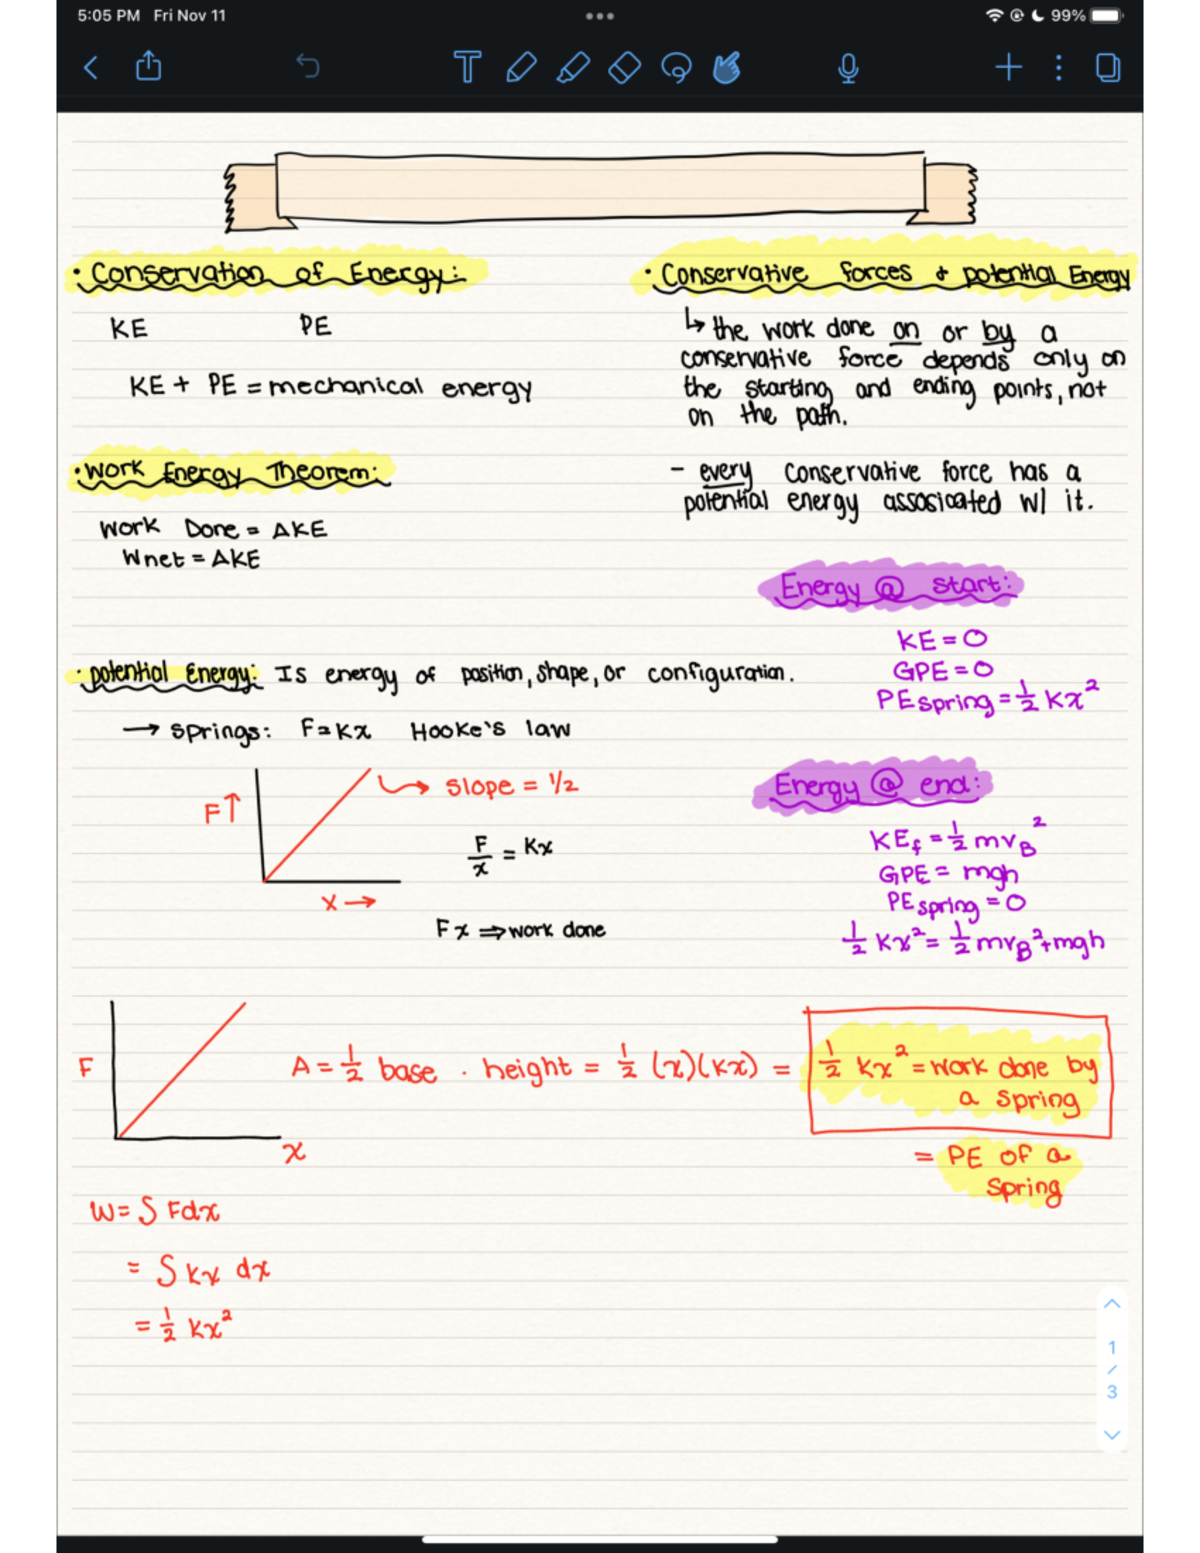 5:05 PM Fri Nov 11
99%
• Conservation of Energy:
KE PE
KE + PE = mechanical energy
• Work Energy Theorem:
Work Done = ΔKE
Wnet = ΔKE
• Conservative forces & potential Energy
↳ the work done on or by a
conservative force depends only on
the starting and ending points, not
on the path.
- every conservative force has a
potential energy assosicated w/ it.
Energy @ start:
KE = 0
GPE = 0
PE spring = 1/2 Kx²
• potential Energy: Is energy of position, shape, or configuration.
→ springs: F = Kx Hooke's law
F↑
slope = 1/2
F/x = Kx
x →
Fx ⇒ work done
Energy @ end:
KEf = 1/2 mvB²
GPE = mgh
PE spring = 0
1/2 Kx² = 1/2 mvB² + mgh
F
x
A = 1/2 base · height = 1/2 (x)(Kx) = 1/2 Kx² = work done by
a spring
= PE of a
spring
W = ∫ Fdx
= ∫ Kx dx
= 1/2 Kx²
1
/
3